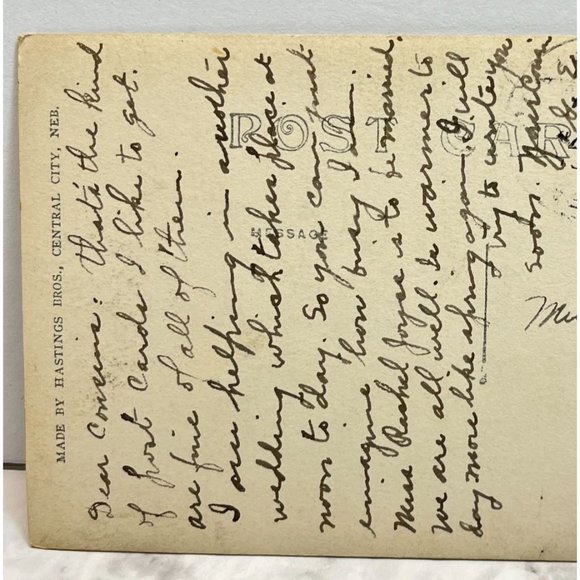 MADE BY HASTINGS BROS., CENTRAL CITY, NEB.
POST CAR
MESSAGE
Dear Cousins: that's the kind
of post cards I like to get.
are fine of all of them.
I am helping in another
wedding which takes place at
noon to day. So you can just
imagine how busy I am.
Miss Rashel Joyce is to be married.
We are all well. Is warmer to
day more like spring again I will
try to write you
soon.